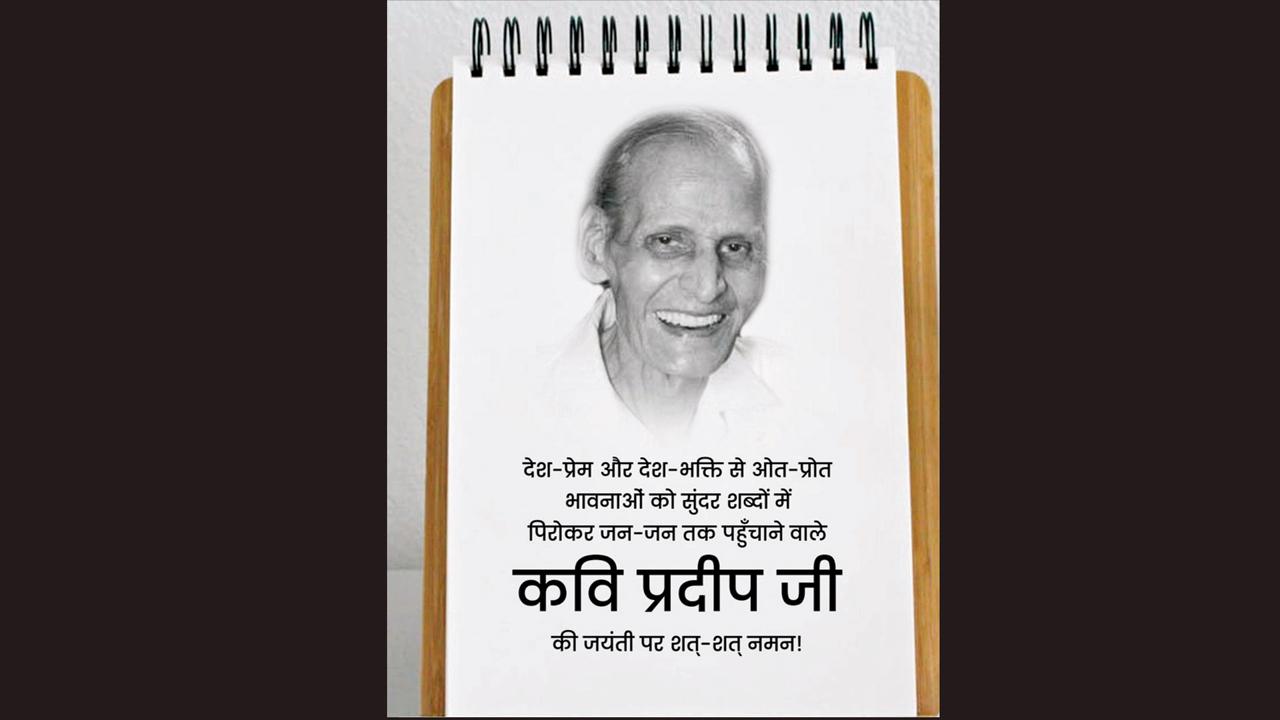 देश-प्रेम और देश-भक्ति से ओत-प्रोत
भावनाओं को सुंदर शब्दों में
पिरोकर जन-जन तक पहुँचाने वाले
कवि प्रदीप जी
की जयंती पर शत्-शत् नमन!